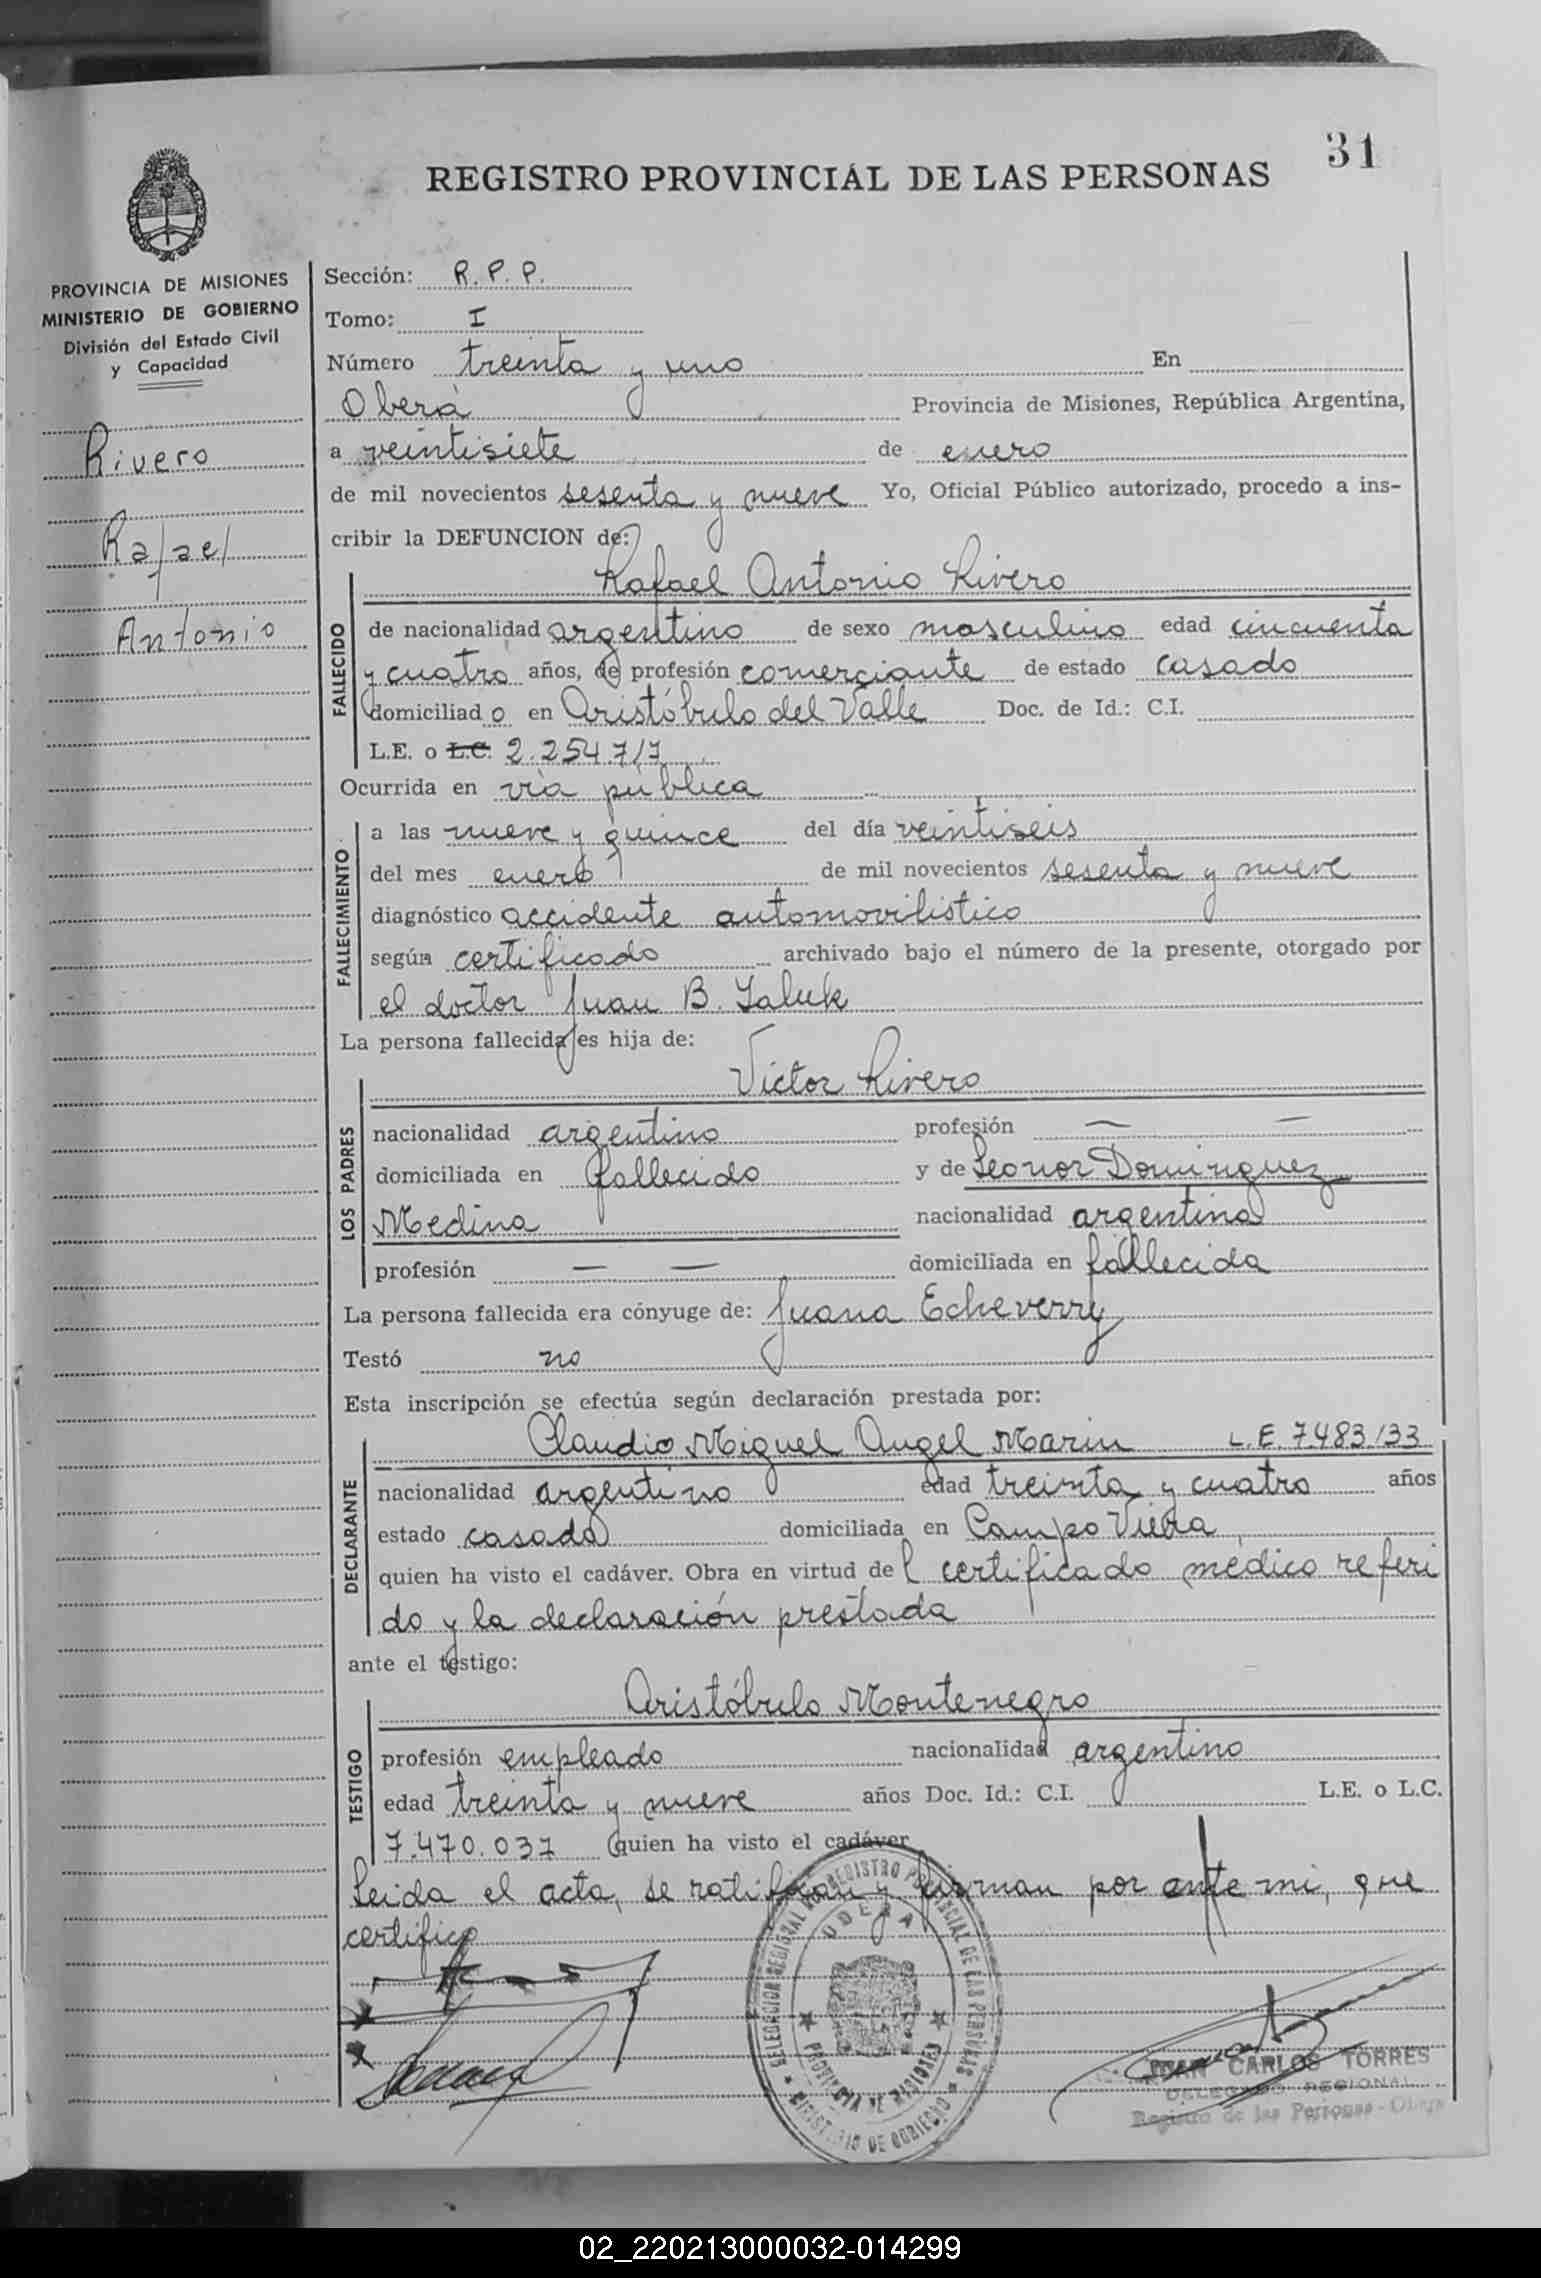 31
REGISTRO PROVINCIAL DE LAS PERSONAS
PROVINCIA DE MISIONES
MINISTERIO DE GOBIERNO
División del Estado Civil
y Capacidad
Rivero
Rafael
Antonio
Sección: R. P. P.
Tomo: I
Número treinta y uno En
Oberá Provincia de Misiones, República Argentina,
a veintisiete de enero
de mil novecientos sesenta y nueve Yo, Oficial Público autorizado, procedo a ins-
cribir la DEFUNCION de:
Rafael Antonio Rivero
FALLECIDO
de nacionalidad argentino de sexo masculino edad cincuenta
y cuatro años, de profesión comerciante de estado casado
domiciliado en Aristóbulo del Valle Doc. de Id.: C.I.
L.E. o L.C. 2.254.717
Ocurrida en vía pública
FALLECIMIENTO
a las nueve y quince del día veintiseis
del mes enero de mil novecientos sesenta y nueve
diagnóstico accidente automovilistico
según certificado archivado bajo el número de la presente, otorgado por
el doctor Juan B.
La persona fallecida es hija de:
Victor Rivero
LOS PADRES
nacionalidad argentino profesión — —
domiciliada en fallecido y de Leonor Dominguez
Medina nacionalidad argentina
profesión — — domiciliada en fallecida
La persona fallecida era cónyuge de: Juana Echeverry
Testó no
Esta inscripción se efectúa según declaración prestada por:
Claudio Miguel Angel Marin L.E. 7.483.133
DECLARANTE
nacionalidad argentino edad treinta y cuatro años
estado casado domiciliada en Campo Viera
quien ha visto el cadáver. Obra en virtud del certificado médico referi
do y la declaración prestada
ante el testigo:
Aristóbulo Montenegro
TESTIGO
profesión empleado nacionalidad argentino
edad treinta y nueve años Doc. Id.: C.I. L.E. o L.C.
7.470.037 quien ha visto el cadáver
Leida el acta, se ratifican y firman por ante mi, que
certifico
DELEGACION REGIONAL DEL REGISTRO PROVINCIAL DE LAS PERSONAS
OBERA
PROVINCIA DE MISIONES
MINISTERIO DE GOBIERNO
JUAN CARLOS TORRES
DELEGADO REGIONAL
Registro de las Personas - Obera
02_220213000032-014299